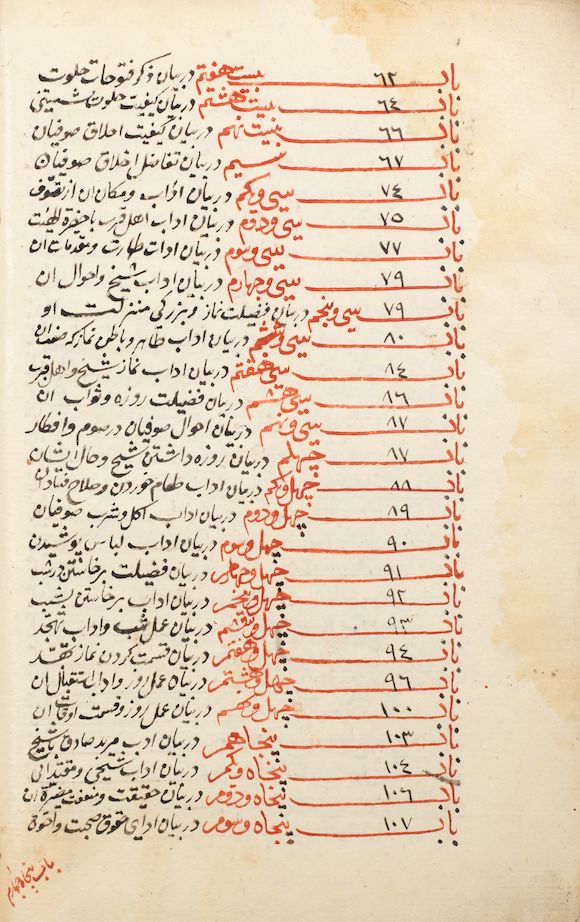 باب ٦٢ بیست هفتم در بیان ذکر فتوحات خلوت
باب ٦٤ بیست هشتم در بیان کیفیت خلوت
باب ٦٦ بیست نهم در بیان کیفیت اخلاق صوفیان
باب ٦٧ سیم در بیان تفاضل اخلاق صوفیان
باب ٧٤ سی ویکم در بیان اداب ومکان ان از تصوف
باب ٧٥ سی ودوم در بیان اداب اهل قرب با حضرة الهیت
باب ٧٧ سی وسوم در بیان اداب طهارت ومقدمات ان
باب ٧٩ سی وچهارم در بیان اداب شیخ واحوال ان
باب ٧٩ سی وپنجم در بیان فضیلت نماز وبزرکی منزلت او
باب ٨٠ سی وششم در بیان اداب ظاهر وباطن نماز که
باب ٨٤ سی هفتم در بیان اداب نماز شیخ واهل قرب
باب ٨٦ سی هشتم در بیان فضیلت روزه وثواب ان
باب ٨٧ سی ونهم در بیان احوال صوفیان در صوم وافطار
باب ٨٧ چهلم در بیان روزه داشتن شیخ وحال ایشان
باب ٨٨ چهل ویکم در بیان اداب طعام خوردن وصلاح
باب ٨٩ چهل ودوم در بیان اداب اکل وشرب صوفیان
باب ٩٠ چهل وسوم در بیان اداب لباس پوشیدن
باب ٩١ چهل وچهارم در بیان فضیلت برخاستن در شب
باب ٩٢ چهل وپنجم در بیان اداب برخاستن بشب
باب ٩٣ چهل وششم در بیان عمل شب واداب تهجد
باب ٩٤ چهل وهفتم در بیان قسمت کردن نماز تهجد
باب ٩٦ چهل وهشتم در بیان عمل روز وادا استقبال ان
باب ١٠٠ چهل ونهم در بیان عمل روز وقسمت اوقات ان
باب ١٠٣ پنجاهم در بیان ادب مرید صادق با شیخ
باب ١٠٤ پنجاه ویکم در بیان اداب شیخی ومقتدائی
باب ١٠٦ پنجاه ودوم در بیان حقیقت ومنفعت ومضرة ان
باب ١٠٧ پنجاه وسوم در بیان ادای حقوق صحبت واخوة
باب پنجاه چهارم